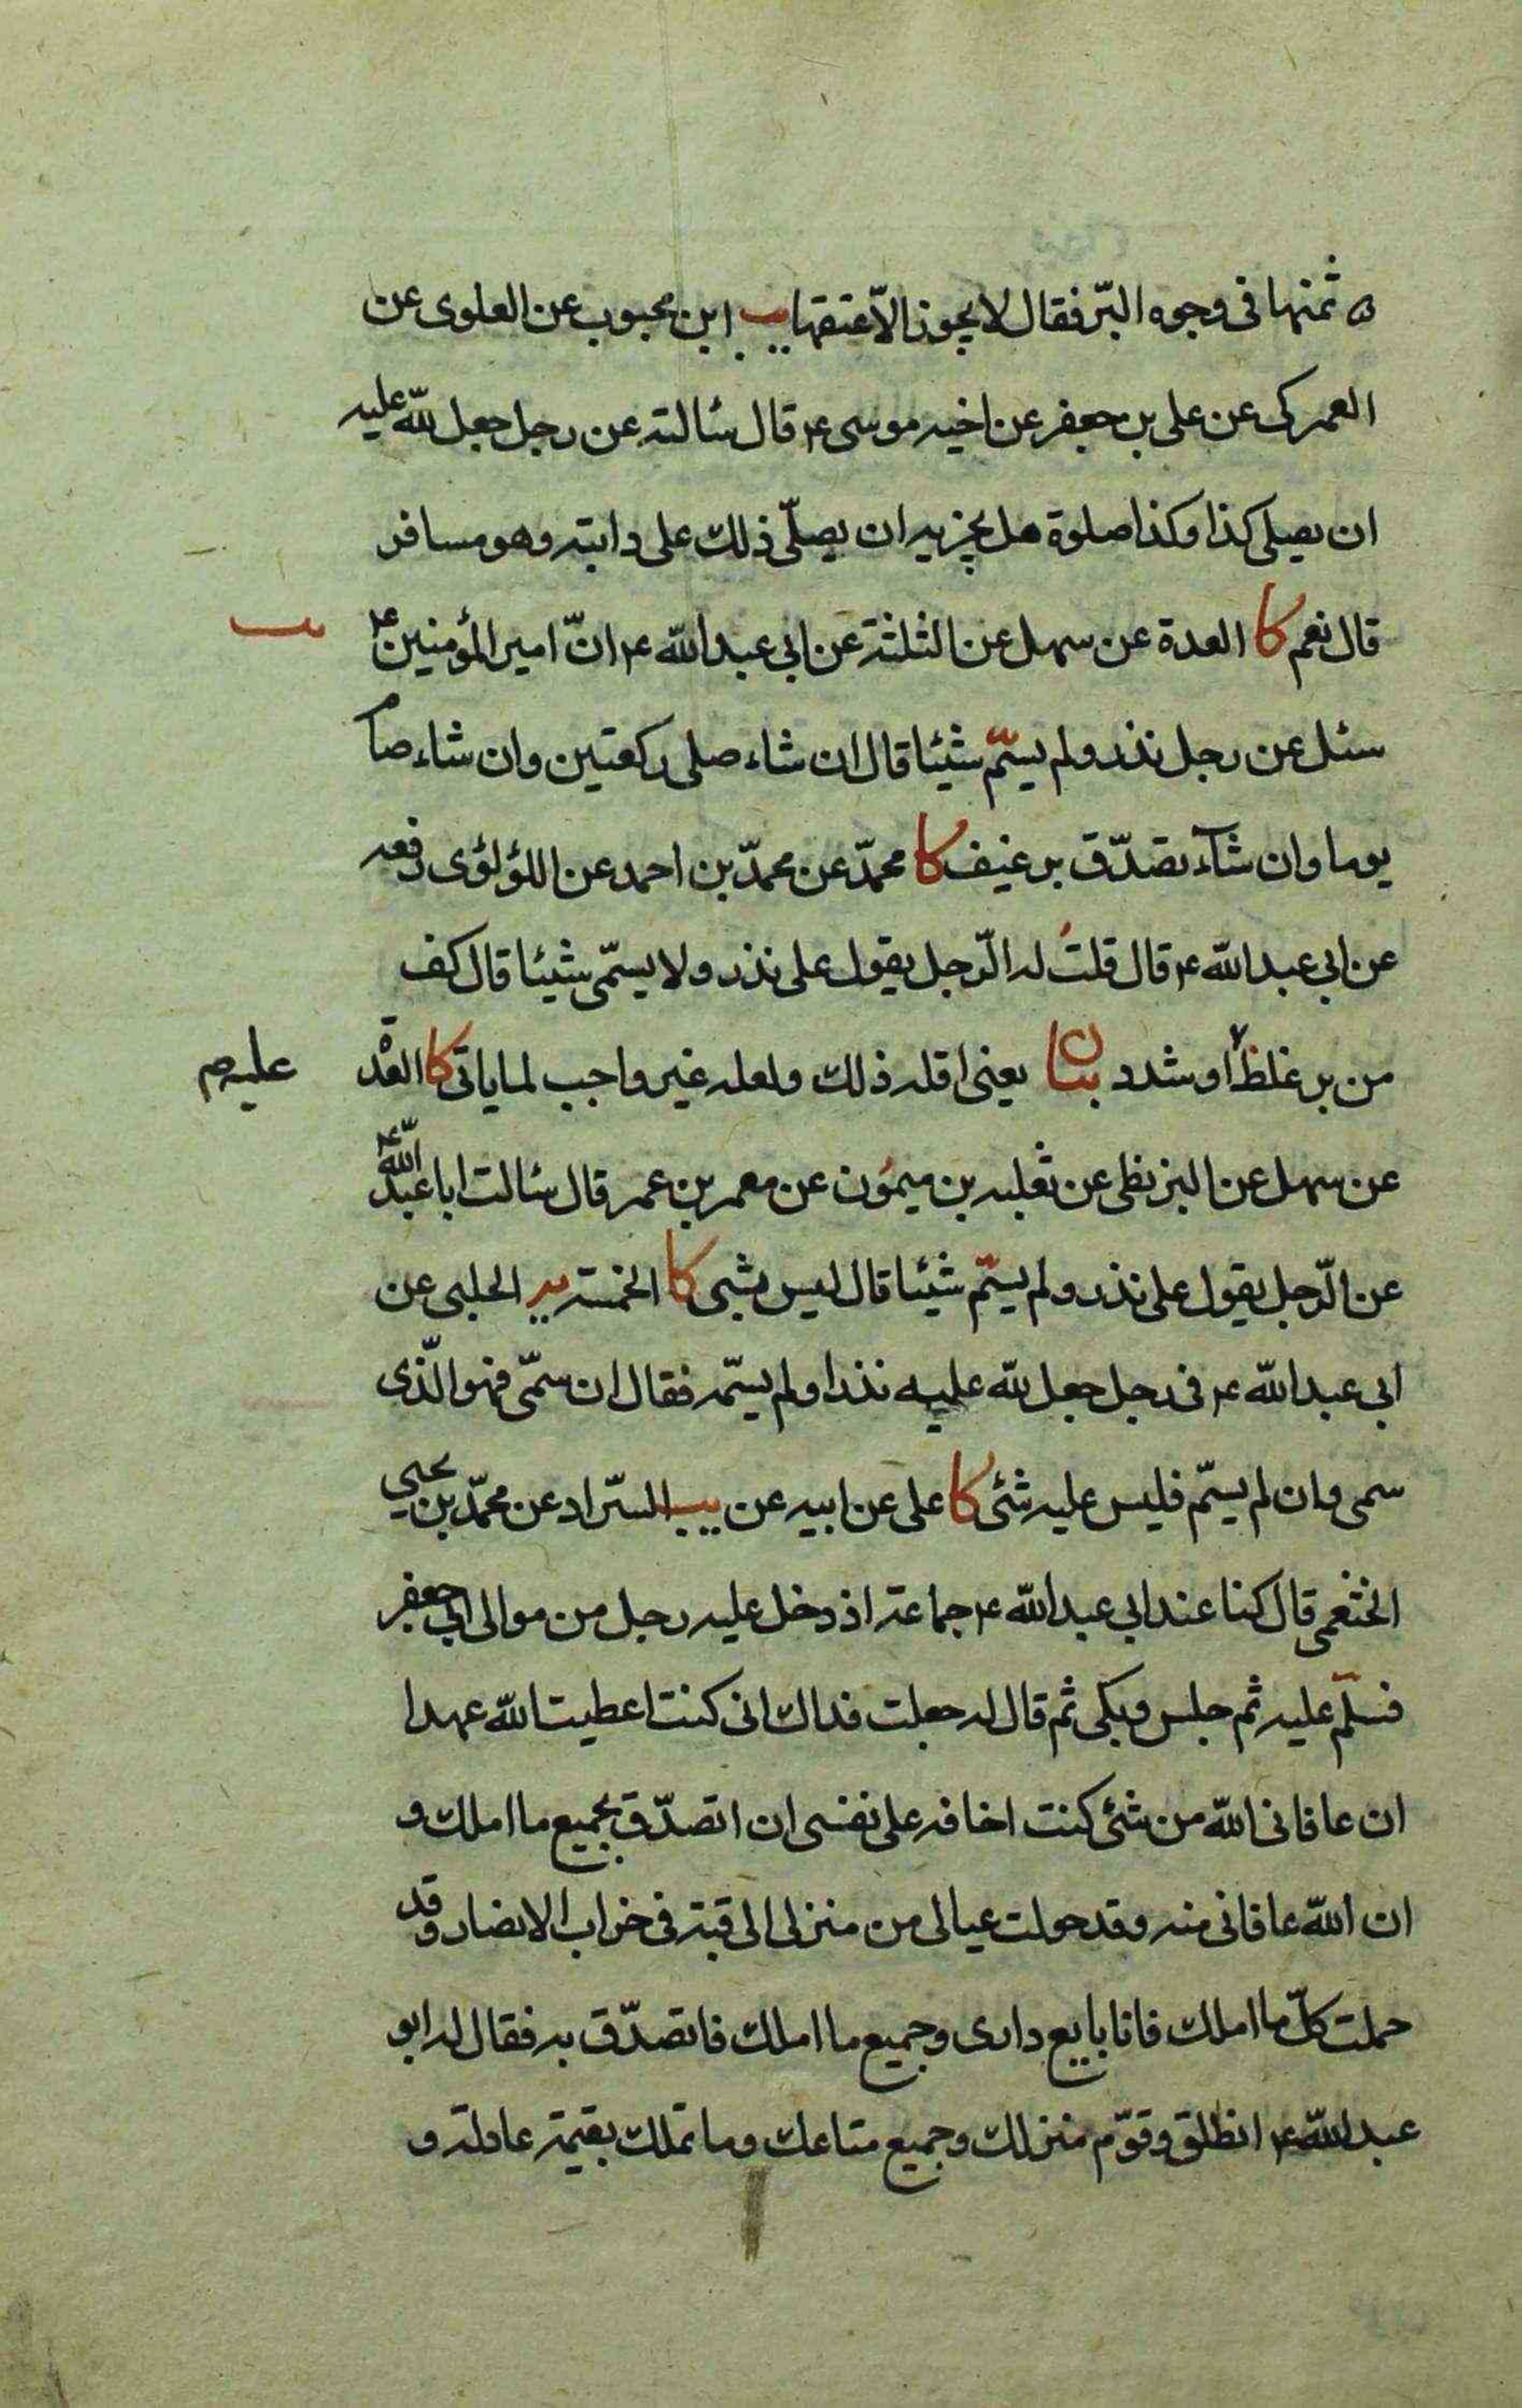 ه ثمنها فى وجوه البّر فقال لا يجوز الاّ عتقها يب ابن محبوب عن العلوى عن
العمركى عن على بن جعفر عن اخيه موسى ع قال سئالته عن رجل جعل لله عليه
ان يصلى كذا وكذا صلوة هل يجزيه ان يصلّى ذلك على دابته وهو مسافر
قال نعم كا العدة عن سهل عن الثلثة عن ابى عبد الله ع انّ امير المؤمنين ع
يب
سئل عن رجل نذر ولم يسّم شيئا قال ان شاء صلى ركعتين وان شاء صام
يوما وان شآء تصدّق برغيف كا محمّد عن محمّد بن احمد عن اللؤلؤى رفعه
عن ابى عبد الله ع قال قلت له الرّجل يقول على نذر ولا يسمّى شيئا قال كف
من بر غلظ او شدد بيان يعنى اقله ذلك ولعله غير واجب لما ياتى كا العدة
عليه م
عن سهل عن البزنطى عن ثعلبه بن ميمون عن معمر بن عمر قال سئالت ابا عبد الله ع
عن الرّجل يقول على نذر ولم يسّم شيئا قال ليس بشىء كا الخمسة يه الحلبى عن
ابى عبد الله ع فى رجل جعل لله عليه نذرا ولم يسمّه فقال ان سمّى فهو الّذى
سمى وان لم يسّم فليس عليه شئ كا على عن ابيه عن يب السّراد عن محمّد بن يحيى
الخثعمى قال كنا عند ابى عبد الله ع جماعة اذ دخل عليه رجل من موالى ابى جعفر
فسلّم عليه ثم جلس وبكى ثم قال له جعلت فداك انى كنت اعطيت الله عهدا
ان عافانى الله من شئ كنت اخافه على نفسى ان اتصدّق بجميع ما املك و
ان الله عافانى منه وقد حولت عيالى من منزلى الى قبة فى خراب الانصار وقد
حملت كلّ ما املك فانا بايع دارى وجميع ما املك فاتصدّق به فقال له ابو
عبد الله ع انطلق وقوّم منزلك وجميع متاعك وما تملك بقيمة عادلة و